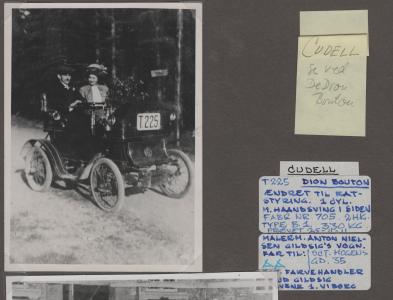 T225
CUDELL
Se ved
DeDion
Bouton
CUDELL
T225 DION BOUTON
ÆNDRET TIL RAT-
STYRING. 1 CYL.
M. HAANDSVING I SIDEN
FABR NR 705. 2HK.
TYPE E.1. 330 KG.
MALERM. ANTON NIEL-
SEN GILDSIG'S VOGN.
FAR TIL: OUT. MOGENS
GD. 35
FARVEHANDLER
GILDSIG
VIBORG